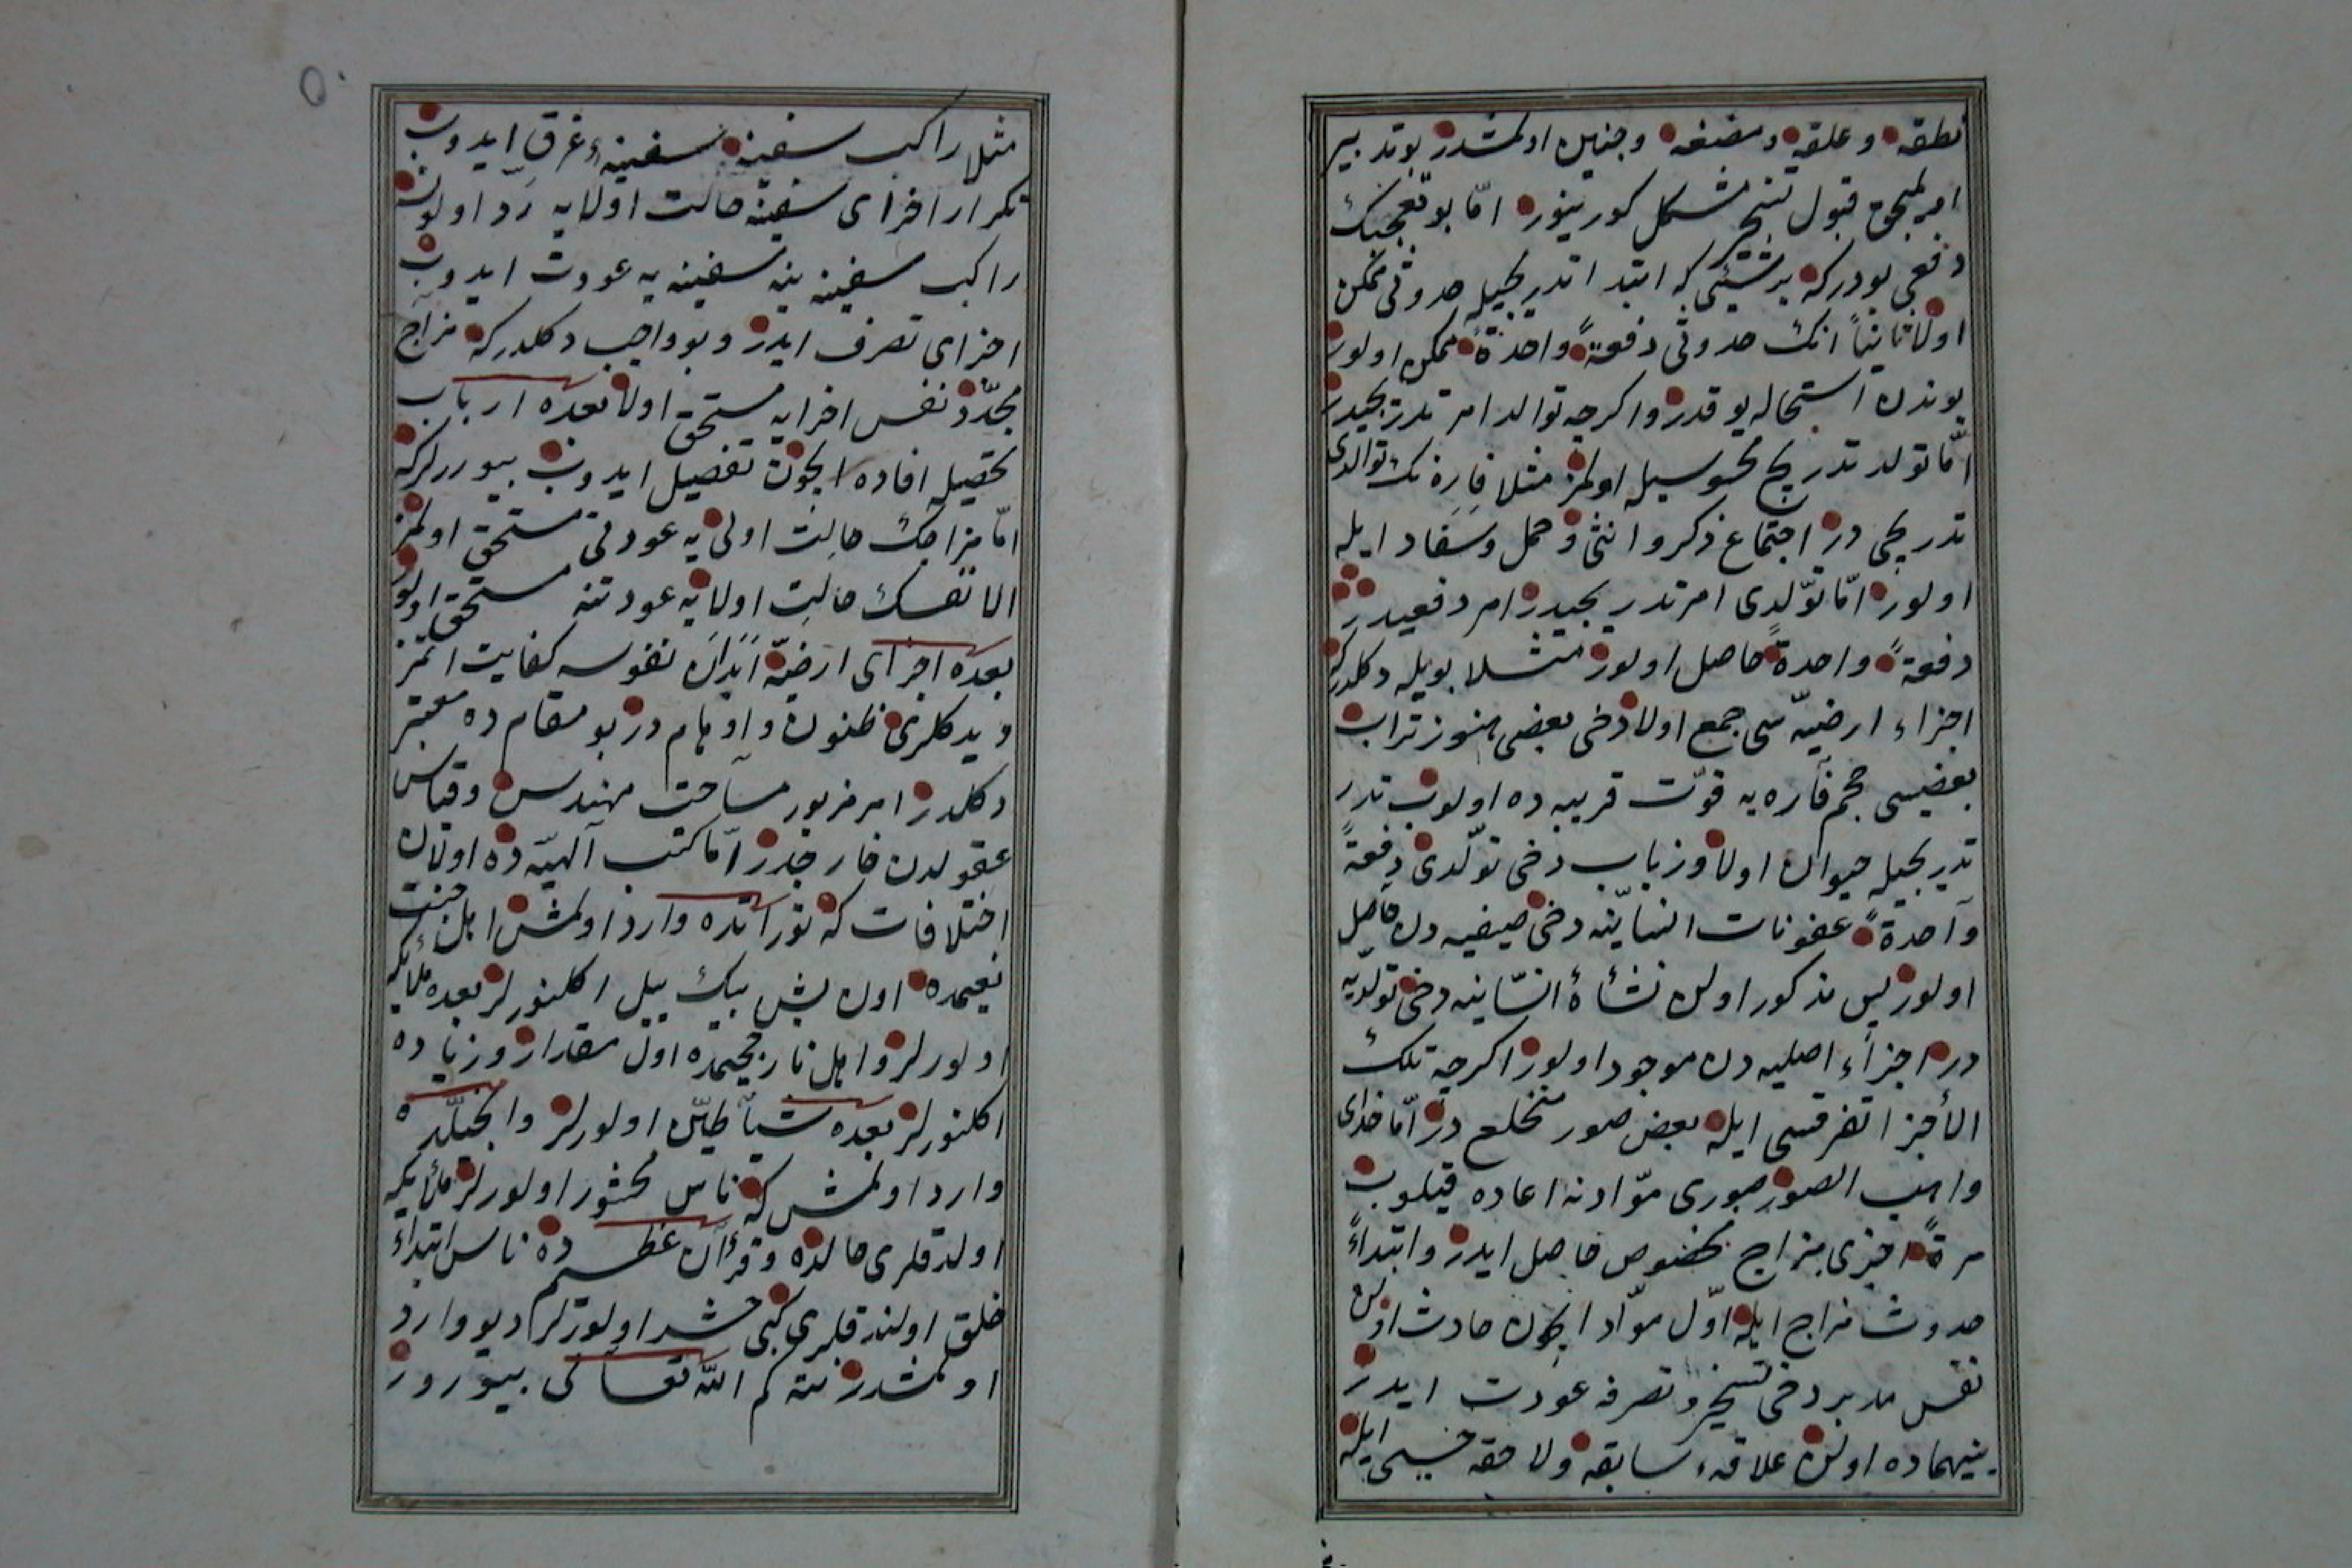 نطفه و علقه و مضغه و جنين اولمشدر بو تدبير
امر طبيعى قبول تسخير مشكل كورينور امّا بو تعجبك
دفعى بودركه بر شيئى كه ابتدا تدريجيله حدوثى ممكن
اولا ثانياً انك حدوثى دفعةً واحدةً ممكن اولور
بوندن استحاله يوقدر و اكرچه توالد امر تدريجيدر
امّا تولد تدريج محسوسيله اولمز مثلا فارەنك توالدى
تدريجى در اجتماع ذكر و انثى و حمل و سفاد ايله
اولور امّا تولّدى امر تدريجيدر امر دفعيدر
دفعةً واحدةً حاصل اولور مثلا بويله دكلدركه
اجزاء ارضيّه سى جمع اولا دخى بعضى هنوز تراب
بعضيسى حجم فاره يه قوّت قريبه ده اولوب تدر
تدريجيله حيوان اولا و زباب دخى تولّدى دفعةً
واحدةً عفونات انباتيه دخى صيفيه دن حاصل
اولور پس مذكور اولن نشأة انسانيه دخى تولّديه
در اجزاء اصليه دن موجود اولور اكرچه تلك
الأجزا تفرقسى ايله بعض صور منخلع در امّا خداى
واهب الصور صورى موّادنه اعاده قيلوب
مرةً اخرى مزاج مخصوص حاصل ايدر و ابتداءً
حدوث مزاج ايله اوّل موّاد ايچون حادث اولن
نفس مدبر دخى تسخير و تصرفه عودت ايدر
بينهماده اولن علاقهء سابقه و لاحقه حسبى ايله
مثلا راكب سفينه سفينهء غرق ايدوب
تكرار اجزاى سفينه حالت اولايه ردّ اولونه
راكب سفينه ينه سفينه يه عودت ايدوب
اجزاى تصرف ايدر و بو واجب دكلدركه مزاج
مجدّد نفس اخرايه مستحق اولا بعده ارباب
تحصيله افاده ايچون تفصيل ايدوب بيوررلركه
امّا مزاجك حالت اولى يه عودتى مستحق اولمز
الا نفسك حالت اولايه عودتنه مستحق اولور
بعده اجزاى ارضيّه ابدان نفوسه كفايت اتمز
ديدكلرى ظنون و اوهام در بو مقام ده معتبر
دكلدر امر مزبور مساحت مهندس و قياس
عقولدن خارجدر امّا كتب آلهيّه ده اولان
اختلافات كه توراتده وارد اولمش اهل جنت
نعيمده اون بش بيك ييل اكلنورلر بعده ملائكه
اولورلر و اهل نار جحيمده اول مقدار و زياده
اكلنورلر بعده شياطين اولورلر و انجيلده
وارد اولمش كه ناس محشور اولورلر ملائكه
اولدقلرى حالده و قرآن عظيم ده ناس ابتداء
خلق اولندقلرى كبى حشر اولورلر ديو وارد
اولمشدر نته كم اللّه تعالى بيورور